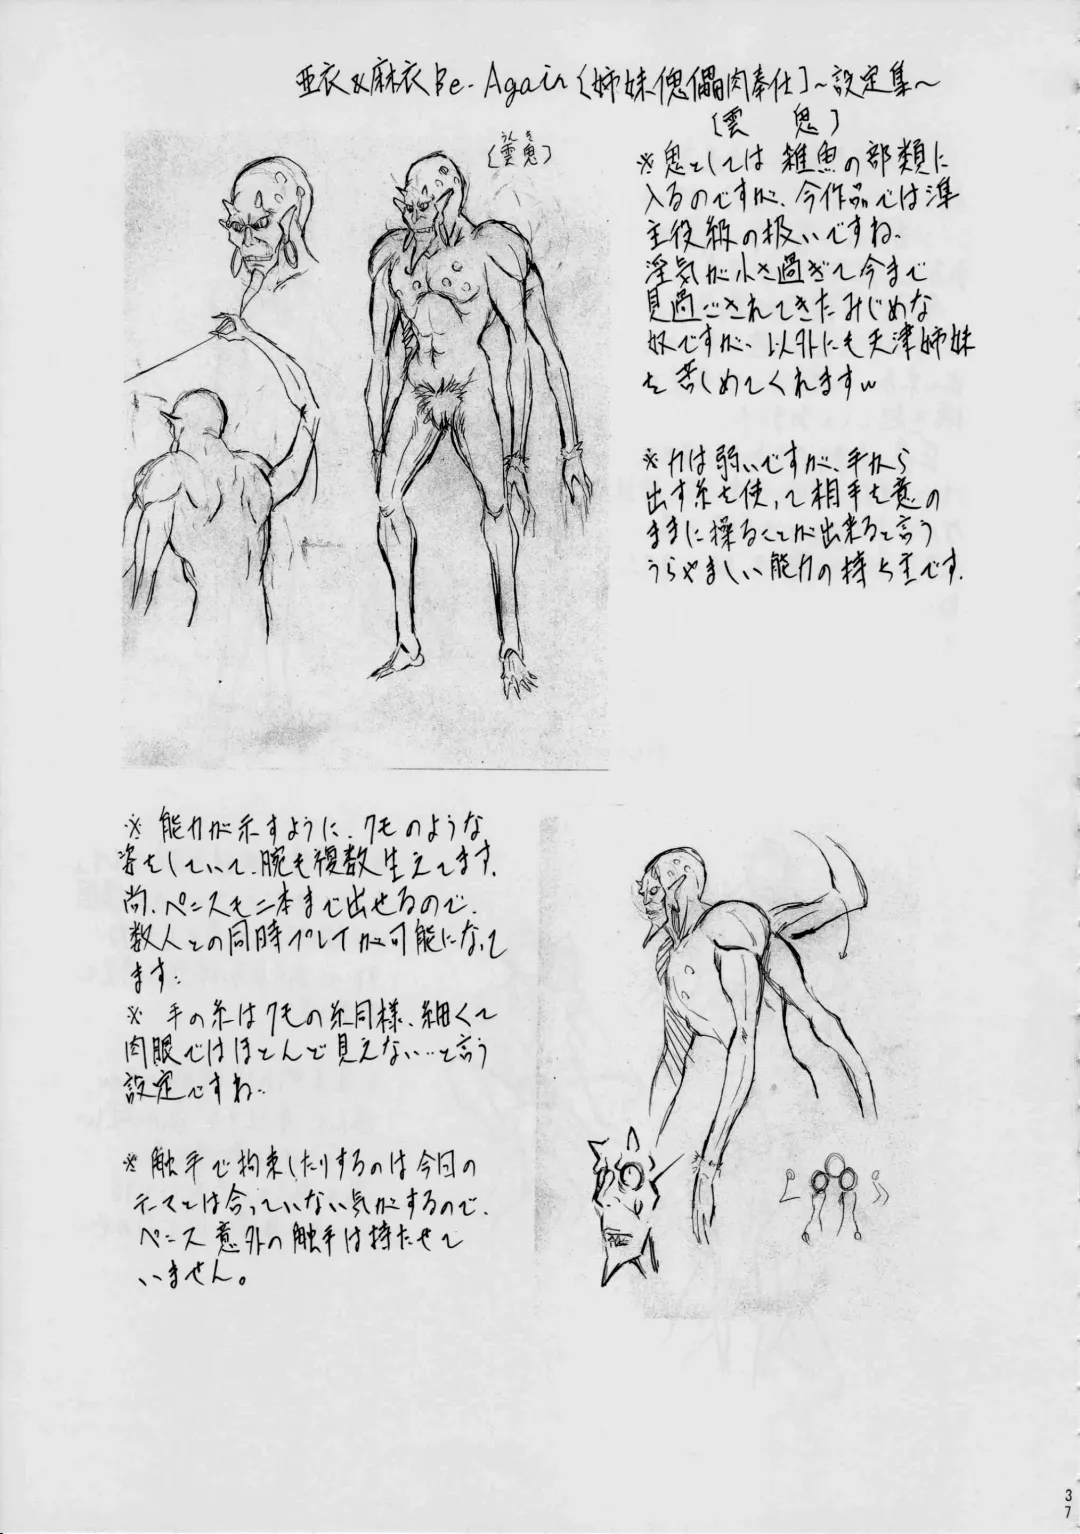 亜衣&麻衣Be-Again〔姉妹傀儡肉奉仕〕~設定集~
〔雲鬼〕
〔雲鬼〕
うんき
※鬼としては雑魚の部類に
入るのですが、今作品では準
主役級の扱いですね、
淫気が小さ過ぎて今まで
見過ごされてきたみじめな
奴ですが、以外にも天津姉妹
を苦しめてくれますw
※力は弱いですが、手から
出す糸を使って相手を意の
ままに操ることが出来ると言う
うらやましい能力の持ち主です.
※能力が示すように、クモのような
姿をしていて、腕も複数生えてます.
尚、ペニスも二本まで出せるので、
数人との同時プレイが可能になって
ます.
※手の糸はクモの糸同様、細くて
肉眼ではほとんど見えない…と言う
設定ですね..
※触手で拘束したりするのは今回の
テーマとは合っていない気がするので、
ペニス意外の触手は持たせて
いません。
37